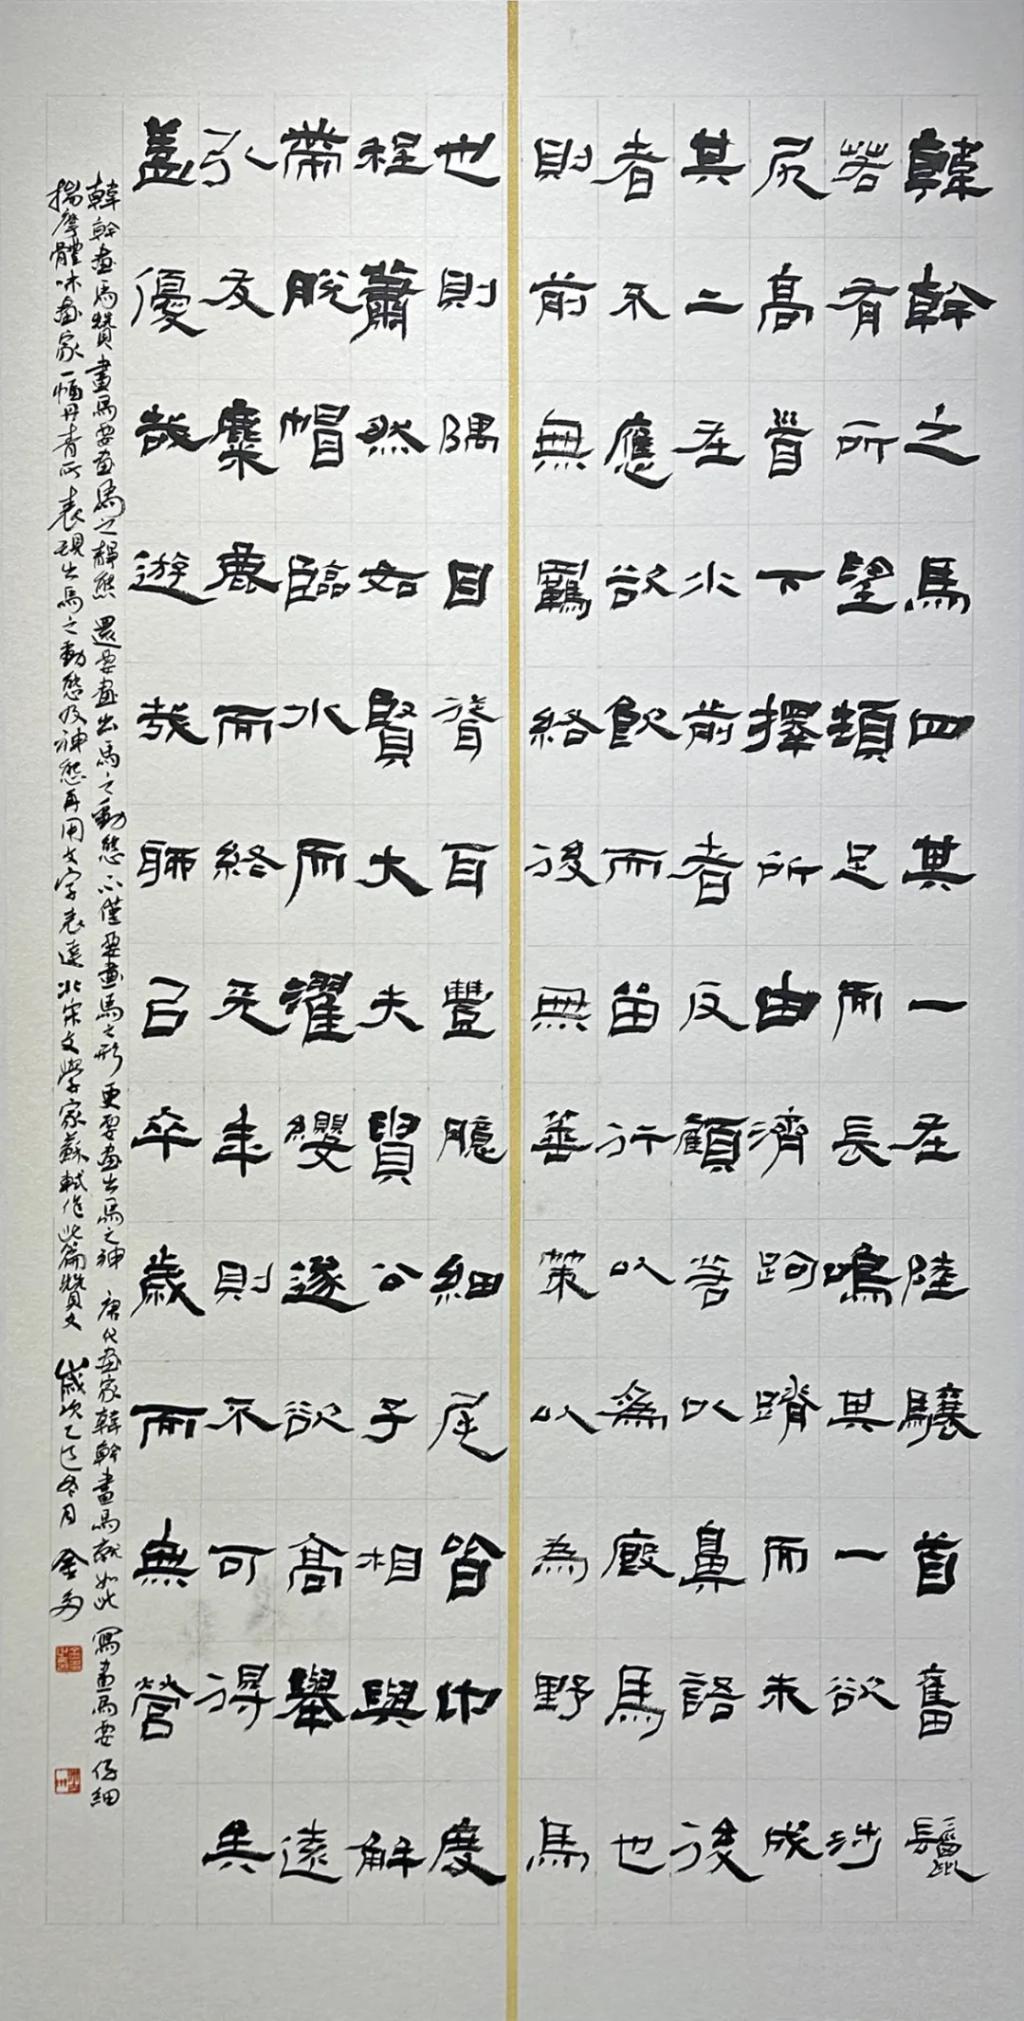 韓幹之馬四其一在陸驤首奮鬣
若有所望頓足而長鳴其一欲涉
尻高首下擇所由濟跼蹐而未成
其二在水前者反顧若以鼻語後
者不應欲飲而留行以為厩馬也
則前無羈絡後無箠策以為野馬
也則隅目聳耳豐臆細尾皆中度
程蕭然如賢大夫貴公子相與解
帶脫帽臨水而濯纓遂欲高舉遠
引友麋鹿而終天年則不可得矣
蓋優哉遊哉聊以卒歲而無營
韓幹畫馬贊畫馬要畫馬之靜態還要畫出馬之動態不僅要畫馬之形更要畫出馬之神唐代畫家韓幹畫馬就如此寫畫馬要仔細
揣摩體味畫家一幅丹青所表現出馬之動態及神態再用文字表達北宋文學家蘇軾作此篇贊文歲次乙巳冬月